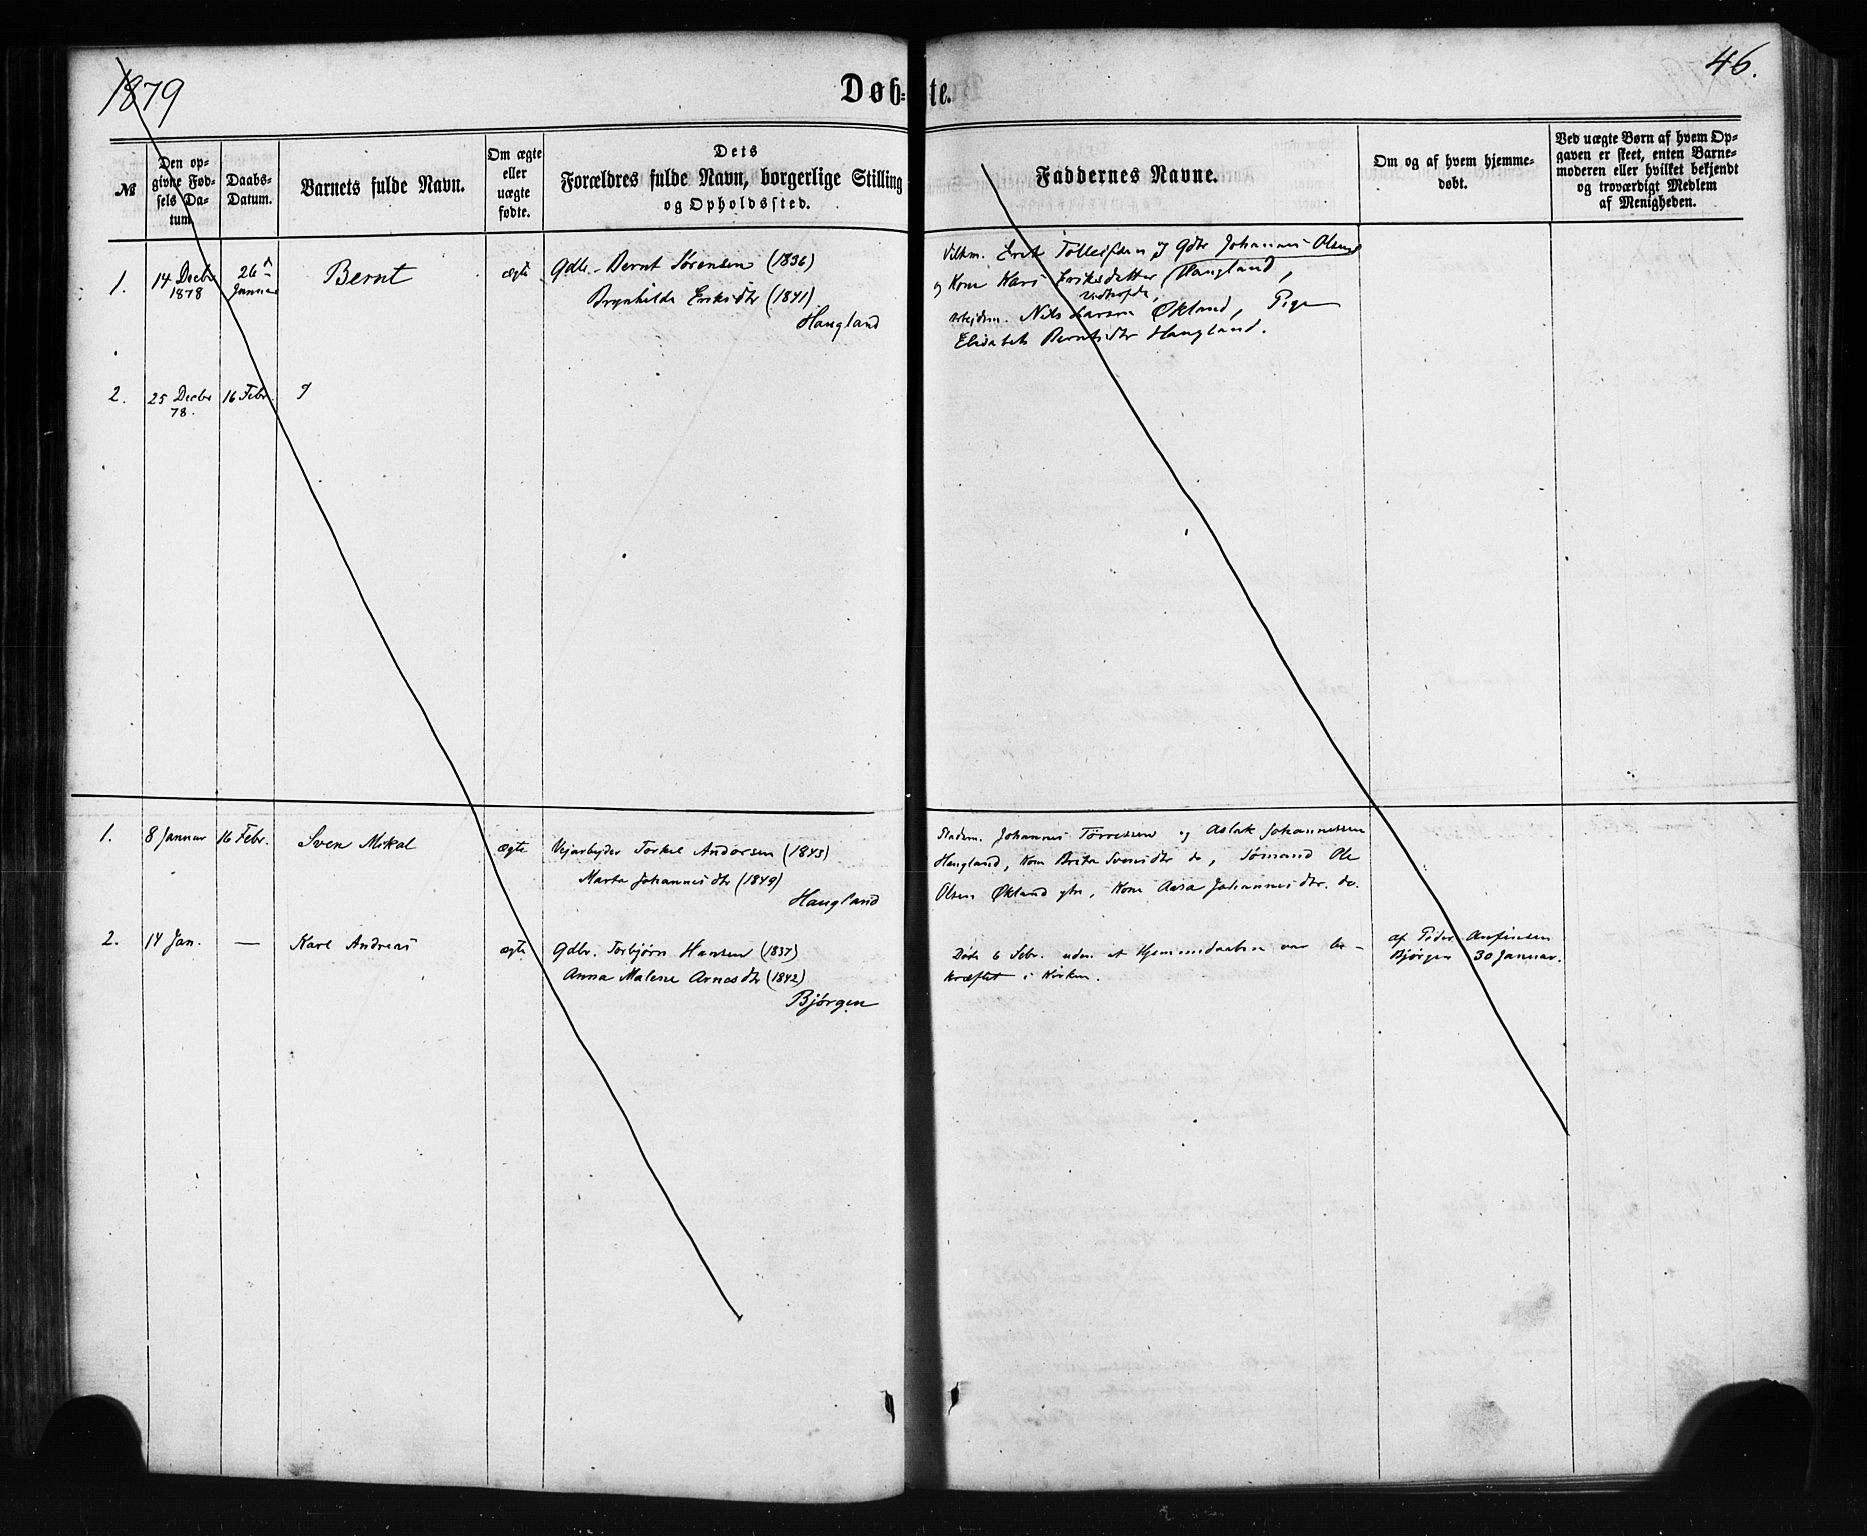 1879
Døb-
te.
46.
№
Den op-
givne Fød-
sels Da-
tum
Daabs-
Datum.
Barnets fulde Navn.
Om ægte
eller
uægte
fødte.
Dets
Forældres fulde Navn, borgerlige Stilling
og Opholdssted.
Faddernes Navne.
Om og af hvem hjemme-
døbt.
Ved uægte Børn af hvem Op-
gaven er skeet, enten Barne-
moderen eller hvilket bekjendt
og troværdigt Medlem
af Menigheden.
1.
14 Decbr
1878
26
Januar
Bernt
ægte
Gdbr. Bernt Sørensen (1836)
Brynhilda Eriksdtr (1841)
Haugland
Erik Tolleifsen Gdbr Johannes Olsen
og Kone Kari Eriksdatter Haugland,
Arbejdsm. Nils Larsen Økland, Pige
Elisabet Berntsdtr Haugland.
2.
25 Decbr
78.
16 Febr.
1.
8 Januar
16 Febr.
Sven Mikal
ægte
Vejarbejder Torkel Andersen (1843)
Marta Johannesdtr (1849)
Haugland
Johannes Tørressen og Aslak Johannessen
Haugland, Kone Brita Svensdtr do, Sømand Ole
Olsen Økland, Kone Aasa Johannesdtr. do.
2.
14 Jan.
—
Karl Andreas
ægte
Gdbr. Torbjørn Hansen (1837)
Anna Malene Arnesdtr (1842)
Bjørgen
Døde 6 Febr. uden at Hjemmedaaben var be-
kræftet i Kirken.
af Peder Anfinsen
Bjørgen 30 Januar.